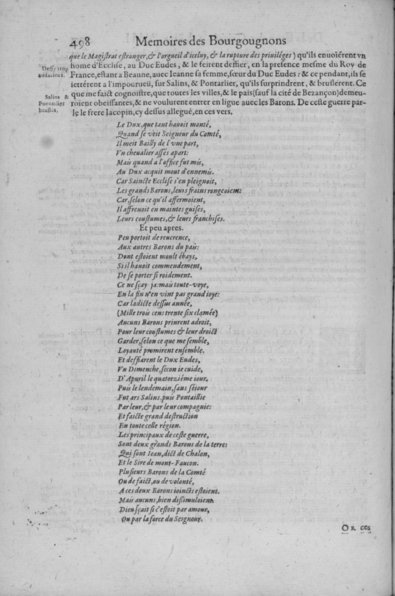 498 Memoires des Bourgougnons
que le Magistrat estranger, & l'orgueil d'iceluy, & la rupture des privileges) qu'ils enuoiérent vn
home d'Eclise, au Duc Eudes, & le feirent deffier, en la presence mesme du Roy de
France, estant a Beaune, auec Ieanne sa femme, sœur du Duc Eudes: & ce pendant, ils se
iettérent a l'impourueu, sur Salins, & Pontarlier, qu'ils surprindrent, & bruslérent. Ce
que me faict cognoistre, que toutes les villes, & le païs (sauf la cité de Bezançon) demeu-
roient obeissantes, & ne voulurent entrer en ligue auec les Barons. De ceste guerre par-
le le frere Iacopin, cy dessus allegué, en ces vers.
Salins &
Pontarlier
bruslés.
Le Dux, que tant hauoit monté,
Quand se veit Seigneur du Comté,
Il meit Bailly de l'vne part,
Vn cheualier assés apart:
Mais quand a l'office fut mis,
Au Dux acquit mout d'ennemis.
Car Saincte Ecclise s'en pleignoit,
Les grands Barons, leurs frains rongeoient:
Car, selon ce qu'il affermoient,
Il affreuoit en maintes guises,
Leurs coustumes, & leurs franchises.
Et peu apres.
Peu portoit de reuerence,
Aux autres Barons du païs:
Dont estoient moult ébays,
Si il hauoit commendement,
De se porter si roidement.
Ce ne sçay-ie mais toute-voye,
En la fin n'en vint pas grand ioye:
Car ladicte dessus année,
(Mille trois cens trente six clamée)
Aucuns Barons prinrent adroit,
Pour leur coustumes & leur droict
Garder, selon ce que me semble,
Loyauté promirent ensemble.
Et deffiarent le Dux Eudes,
Vn Dimenche, secon ie cuide,
D'Apuril le quatorziéme iour,
Puis le lendemain, sans séiour
Fut ars Salins, puis Pontaillie
Par leur, & par leur compagnie:
Et faicte grand destruction
En toute celle région.
Les principaux de ceste guerre,
Sont deux grands Barons de la terre:
Qui sont Iean, dict de Chalon,
Et le Sire de mont-Faucon.
Plusieurs Barons de la Comté
Ou de faict, ou de volonté,
A ces deux Barons ioincts estoient.
Mais aucuns, bien dissimuloient,
Dieu sçait si c'estoit par amour,
Ou par la force du Seignour.